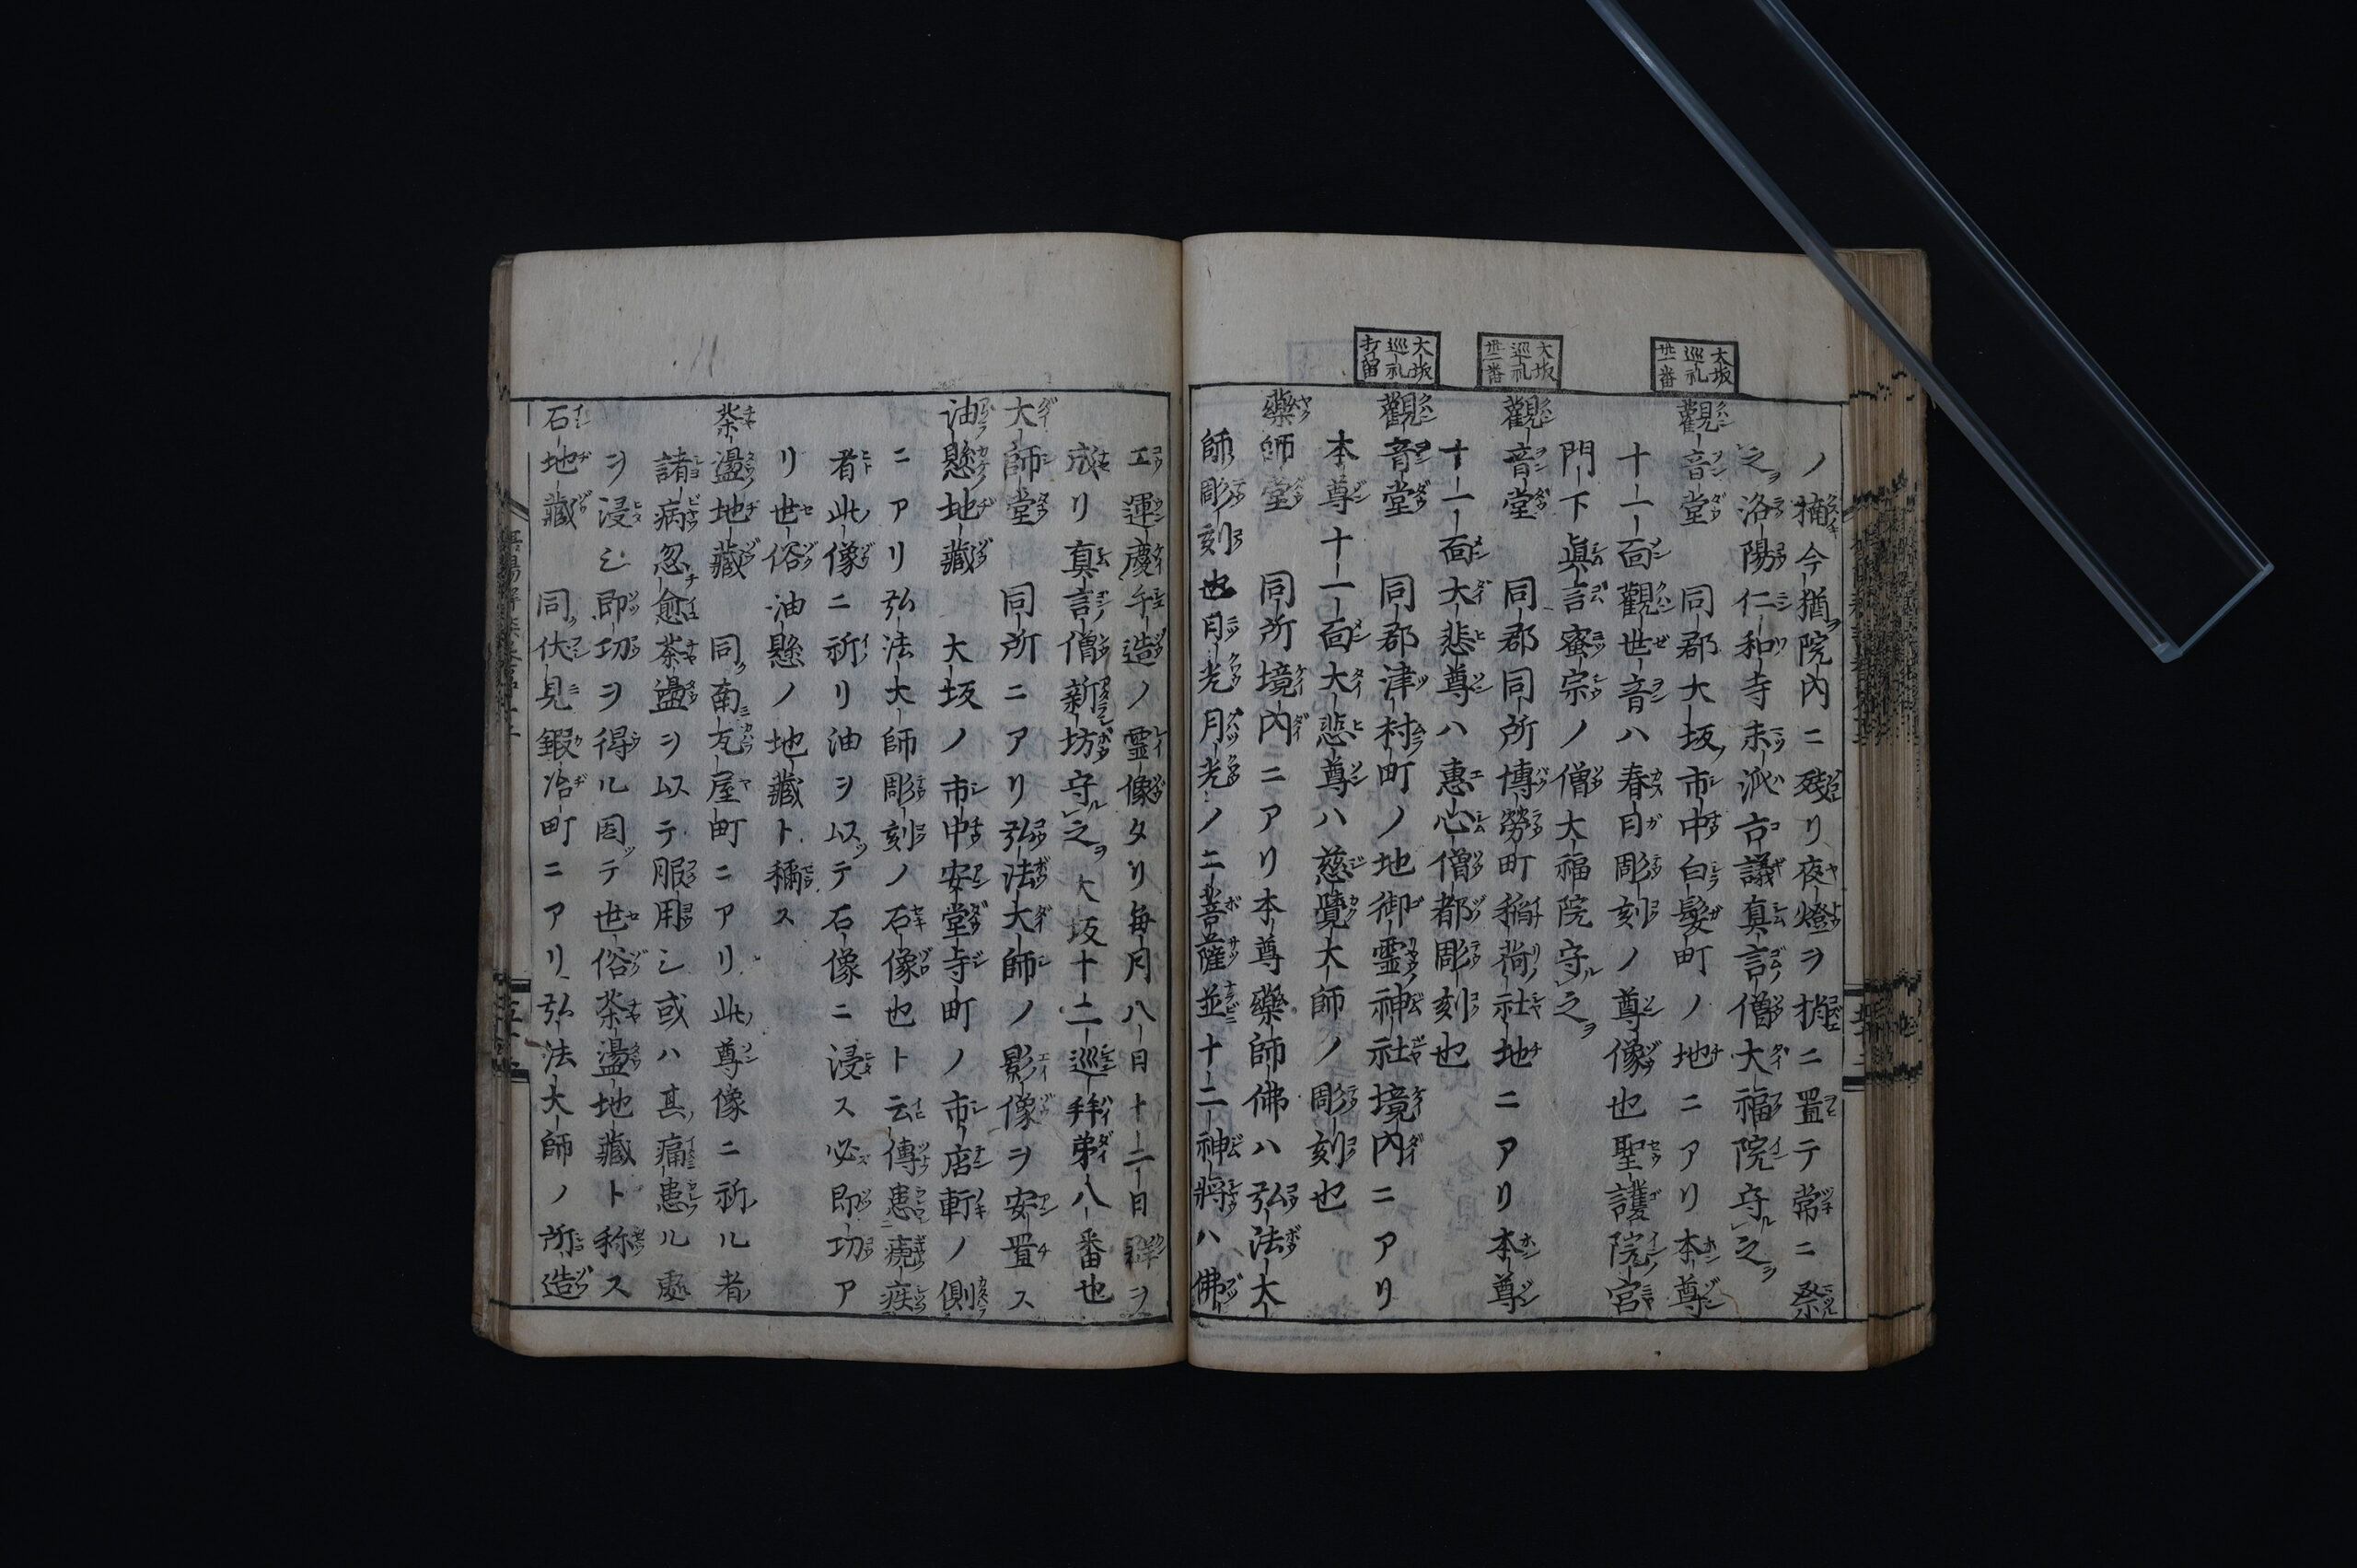 大坂巡礼丗一番
大坂巡礼丗二番
大坂巡礼打留
ノ楠今猶院内ニ殘リ夜燈ヲ挑ニ置テ常ニ祭
之洛陽仁和寺末派古議真言僧大福院守之
觀音堂　同郡大坂市中白髮町ノ地ニアリ本尊
十一面觀世音ハ春日彫刻ノ尊像也聖護院宮
門下眞言蜜宗ノ僧大福院守之
觀音堂　同郡同所博勞町稲荷社地ニアリ本尊
十一面大悲尊ハ惠心僧都彫刻也
觀音堂　同郡津村町ノ地御霊神社境内ニアリ
本尊十一面大悲尊ハ慈覺大師ノ彫刻也
藥師堂　同所境内ニアリ本尊藥師佛ハ弘法大
師彫刻也日光月光ノ二菩薩並十二神將ハ佛
工運慶ノ造ノ霊像タリ毎月八日十二日縁ヲ
成リ真言僧新坊守之大坂十二巡拜第八番也
大師堂　同所ニアリ弘法大師ノ影像ヲ安置ス
油懸地藏　大坂ノ市中安堂寺町ノ市店軒ノ側
ニアリ弘法大師彫刻ノ石像也ト云傳患癘疾
者此像ニ祈リ油ヲ以テ石像ニ浸ス必即功ア
リ世俗油懸ノ地藏ト稱ス
茶盪地藏　同南瓦屋町ニアリ此尊像ニ祈ル者
諸病忽愈茶盪ヲ以テ服用シ或ハ其痛患ル處
ヲ浸シ即功ヲ得ル固テ世俗茶盪地藏ト称ス
石地藏　同伏見鍜冶町ニアリ弘法大師ノ所造